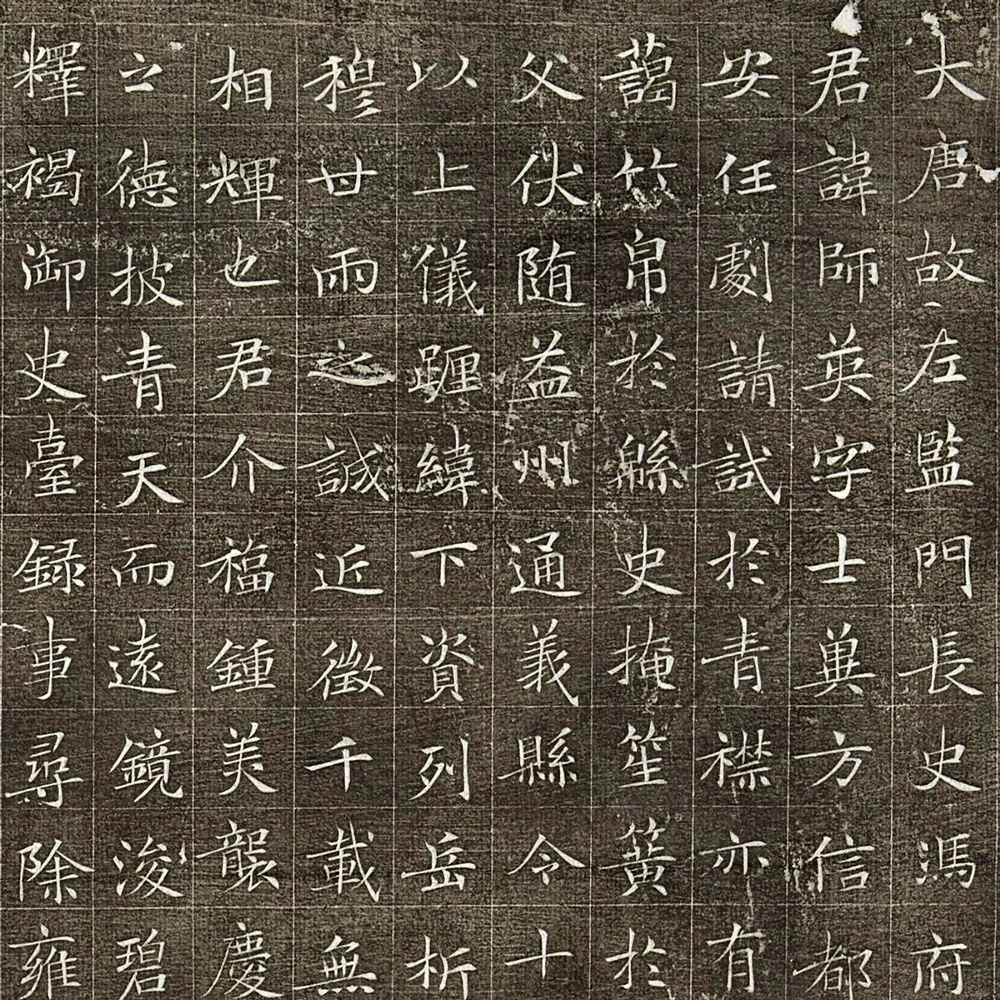 大唐故左監門長史馮府
君諱師英字士兾方信都
安任劇請試於青襟亦有
藹竹帛於緜史掩笙簧於
父伏随益州通義縣令十
以上儀躔緯下資列岳析
穆甘雨之誠近徵千載無
相輝也君介福鍾美襲慶
之德披青天而遠鏡浚碧
釋褐御史臺録事尋除雍